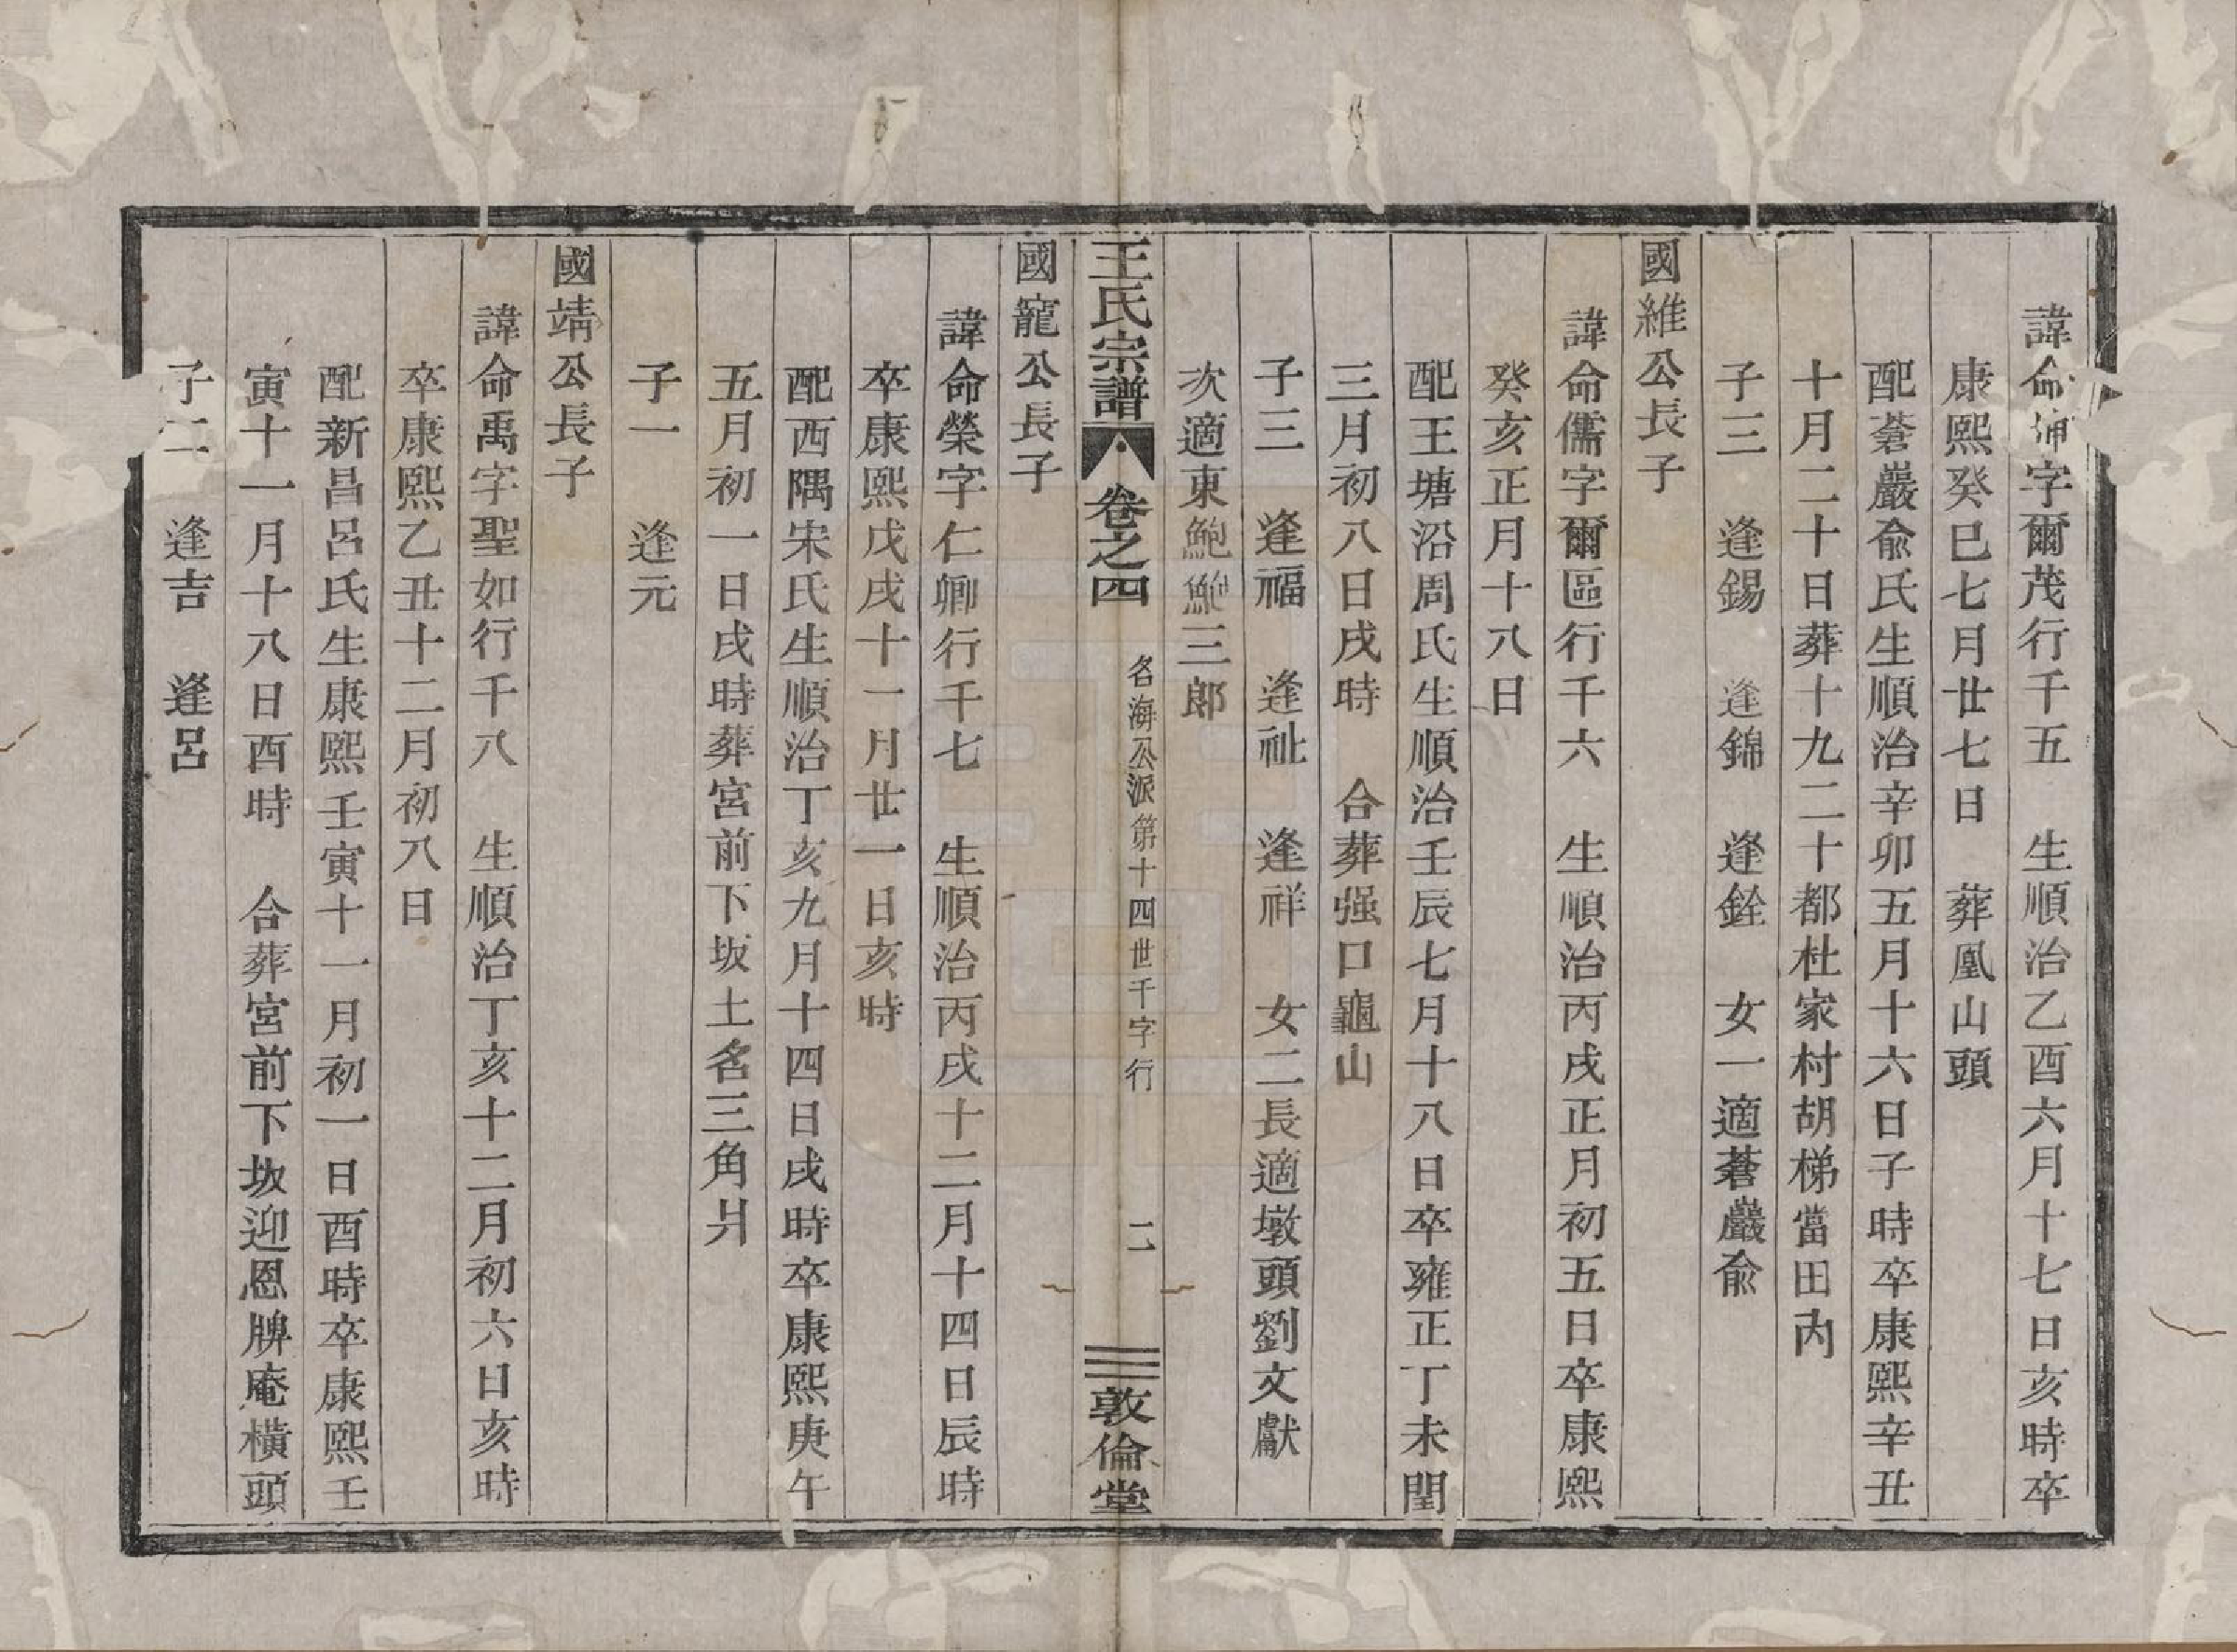 諱命字爾茂行千五　生順治乙酉六月十七日亥時卒
康熙癸巳七月廿七日　葬鳳山頭
配蒼巖俞氏生順治辛卯五月十六日子時卒康熙辛丑
十月二十日葬十九二十都杜家村胡梯當田內
子三　逢錫　逢錦　逢銓　女一適蒼巖俞
國維公長子
諱命儒字爾區行千六　生順治丙戌正月初五日卒康熙
癸亥正月十八日
配王塘沿周氏生順治壬辰七月十八日卒雍正丁未閏
三月初八日戌時　合葬强口龜山
子三　逢福　逢祉　逢祥　女二長適墩頭劉文獻
次適東鮑鮑三郎
王氏宗譜　卷之四　名海公派第十四世千字行　二　敦倫堂
國寵公長子
諱命榮字仁卿行千七　生順治丙戌十二月十四日辰時
卒康熙戊戌十一月廿一日亥時
配西隅宋氏生順治丁亥九月十四日戌時卒康熙庚午
五月初一日戌時葬宮前下坂土名三角爿
子一　逢元
國靖公長子
諱命禹字聖如行千八　生順治丁亥十二月初六日亥時
卒康熙乙丑十二月初八日
配新昌呂氏生康熙壬寅十一月初一日酉時卒康熙壬
寅十一月十八日酉時　合葬宮前下坂迎恩牌庵橫頭
子二　逢吉　逢呂